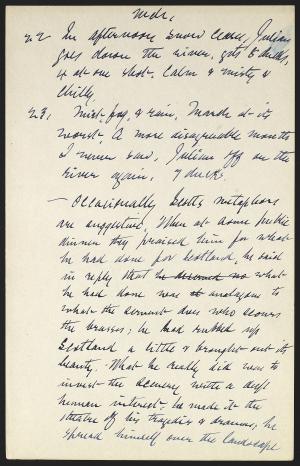 22 In afternoon snow clears, Julian
goes down the river, gets 5 ducks,
4 at one shot. Calm & misty &
chilly.
23. Mist, fog, & rain, March at its
worst. A more disagreeable month
I never saw. Julian off on the
river again. 7 ducks.
— Occasionally Scott's metaphors
are suggestive. When at some public
dinner they praised him for what
he had done for Scotland, he said
in reply that what
he had done was analagous to
what the servant does who scours
the brasses; he had rubbed up
Scotland a little & brought out its
beauty. What he really did was to
invest the scenery with a deep
human interest; he made it the
theatre of his tragedies & dramas; he
spread himself over the landscape